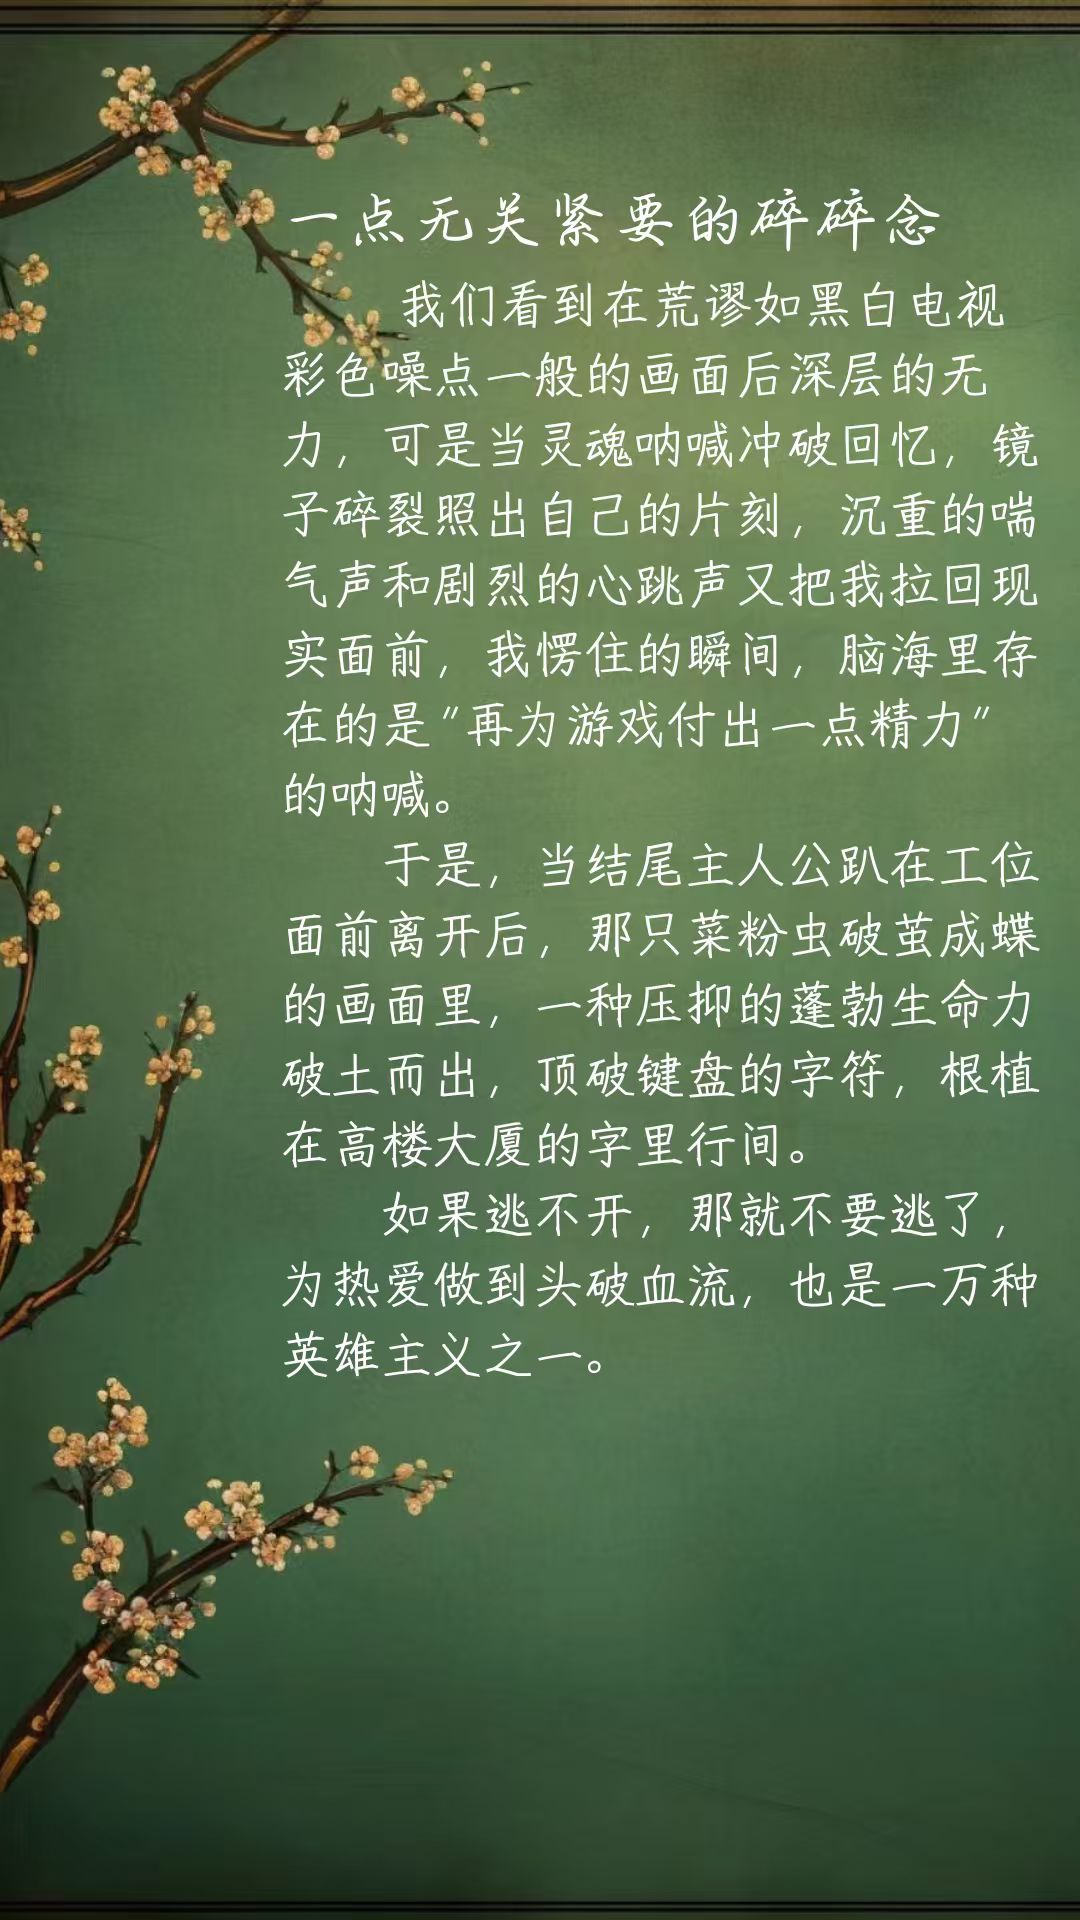 一点无关紧要的碎碎念
我们看到在荒谬如黑白电视
彩色噪点一般的画面后深层的无
力，可是当灵魂呐喊冲破回忆，镜
子碎裂照出自己的片刻，沉重的喘
气声和剧烈的心跳声又把我拉回现
实面前，我愣住的瞬间，脑海里存
在的是"再为游戏付出一点精力"
的呐喊。
于是，当结尾主人公趴在工位
面前离开后，那只菜粉虫破茧成蝶
的画面里，一种压抑的蓬勃生命力
破土而出，顶破键盘的字符，根植
在高楼大厦的字里行间。
如果逃不开，那就不要逃了，
为热爱做到头破血流，也是一万种
英雄主义之一。